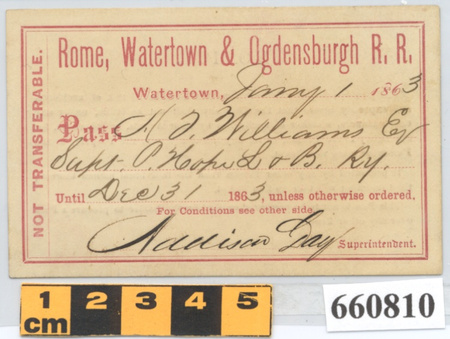 Rome, Watertown & Ogdensburgh R. R.
Watertown, Jany 1 1863
Pass A. T. Williams Eq
Supt. P. Hope L & B. Ry.
Until Dec 31 1863, unless otherwise ordered.
For Conditions see other side.
Addison Day Superintendent.
NOT TRANSFERABLE.
1 2 3 4 5
cm
660810